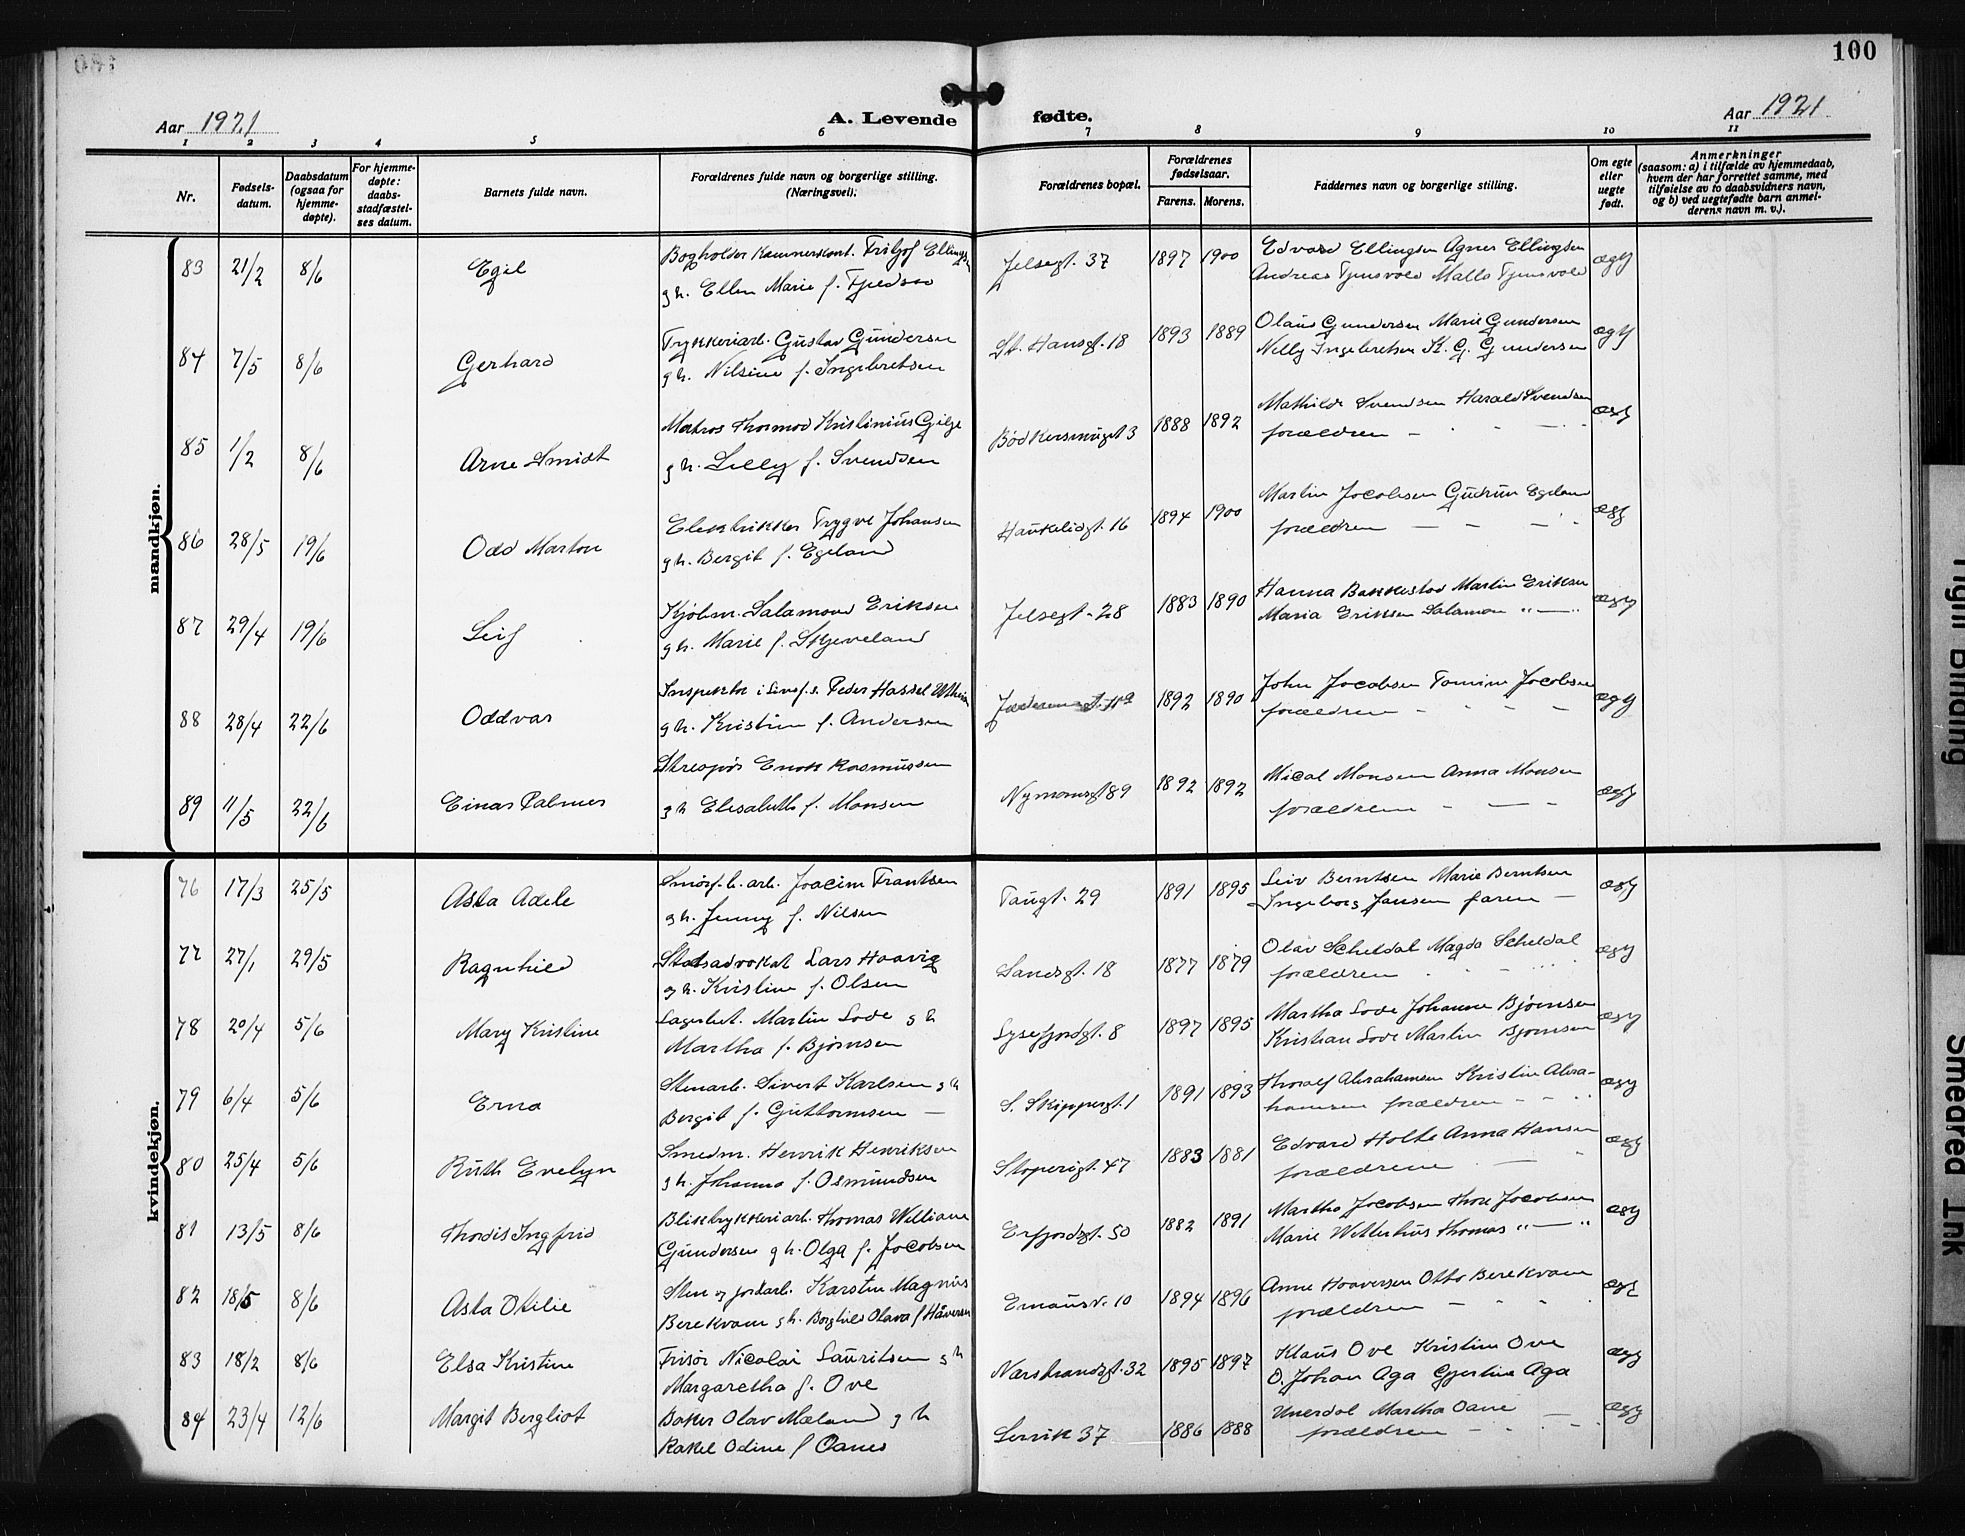 100
Aar 1921
A. Levende fødte.
Aar 1921
1 2 3 4 5 6 7 8 9 10 11
Nr.
Fødsels-
datum.
Daabsdatum
(ogsaa for
hjemme-
døpte).
For hjemme-
døpte:
daabs-
stadfæstel-
ses datum.
Barnets fulde navn.
Forældrenes fulde navn og borgerlige stilling.
(Næringsvei).
Forældrenes bopæl.
Forældrenes
fødselsaar.
Farens. Morens.
Faddernes navn og borgerlige stilling.
Om egte
eller
uegte
født.
Anmerkninger
(saasom: a) i tilfælde av hjemmedaab,
hvem der har forrettet samme, med
tilføielse av to daabsvidners navn,
og b) ved uegtefødte barn anmel-
derens navn m. v.).
mandkjøn.
83 21/2 8/6 Egil
Bogholder Kæmnerkont. Fritjof Ellingsen
g h. Ellen Marie f.
Jelsegt. 37 1897 1900
Edvard Ellingsen Agnes Ellingsen
Andreas Malla
ægt
84 7/5 8/6 Gerhard
Trykkeriarb. Gustav Gundersen
g h. Nilsine f. Ingebretsen
St. Hansgt. 18 1893 1889
Olaus Gundersen Marie Gundersen
Nelly Ingebretsen K. G. Gundersen
ægt
85 1/2 8/6 Arne Smidt
Matros Thormod Kristinius Gilje
g h. Lilly f. Svendsen
Bødkersmuget 3 1888 1892
Mathilde Svendsen Harald Svendsen
forældren
ægt
86 28/5 19/6 Odd Marton
Elektrikker Trygve Johansen
g h. Bergit f. Egeland
Haukelidgt. 16 1894 1900
Martin Jacobsen Gudrun Egeland
forældren
ægt
87 29/4 19/6 Leif
Kjøbm. Salamon Eriksen
g h. Marie f. Skjeveland
Jelsegt. 28 1883 1890
Hanna Bakkestad Martin Eriksen
Maria Eriksen Salamon " — "
ægt
88 28/4 22/6 Oddvar
Inspektør i Livsf.s. Peder Hassel
g h. Kristine f. Andersen
1892 1890
John Jacobsen Tomine Jacobsen
forældren
ægt
89 11/5 22/6 Einar Palmer
Enok Rasmussen
g h Elisabeth f. Monsen
89 1892 1892
Mical Monsen Anna Monsen
forældrene
ægt
kvindekjøn.
76 17/3 25/5 Asta Adele
arb. Joacim Frantsen
g h. Jenny f. Nilsen
Taugt. 29 1891 1895
Leiv Berntsen Marie Berntsen
Ingeborg Jansen faren
ægt
77 27/1 29/5 Ragnhild
Statsadvokat Lars Haavig
g h. Kristine f. Olsen
Sandsgt. 18 1877 1879
Olav Scheldal Magda Scheldal
forældren
ægt
78 20/4 5/6 Mary Kristine
Lagerbet. Martin Lode g h
Martha f. Bjørnsen
Lysefjordgt. 8 1897 1895
Martha Lode Johanne Bjørnsen
Kristian Lode Martin Bjørnsen
ægt
79 6/4 5/6 Erna
Stenarb. Sivert Karlsen g h
Bergit f. Guttormsen
S. Skippergt. 1 1891 1893
Thoralf Abrahamsen Kristine Abra-
hamsen forældren
ægt
80 25/4 5/6 Ruth Evelyn
Smedm. Henrik Henriksen
g h. Johanna f. Osmundsen
47 1883 1881
Edvard Holte Anna Hansen
forældrene
ægt
81 13/5 8/6 Thordis Ingfrid
Bliktrykkeriarb. Thomas William
Gundersen g h. Olga f. Jacobsen
Erfjordgt. 50 1882 1891
Martha Jacobsen Thore Jacobsen
Marie Thomas " — "
ægt
82 18/5 8/6 Asta Otilie
Sten og jordarb. Karsten Magnus
Berekvam g h. Borghild Olava f Håversen
Emausv. 10 1894 1896
Anne Haaversen Otto Berekvam
forældren
ægt
83 18/2 8/6 Elsa Kristine
Frisør Nicolai Lauritsen g h
Margaretha f. Ove
Narstrandsgt. 32 1895 1897
Klaus Ove Kristine Ove
O. Johan Aga Gjertine Aga
ægt
84 23/4 12/6 Margit Bergliot
Baker Olav Mæland g h
Rakel Odine f Oanes
Lervik 37 1886 1888
Martha Oane
forældren
ægt
Tight Binding
Smeared Ink